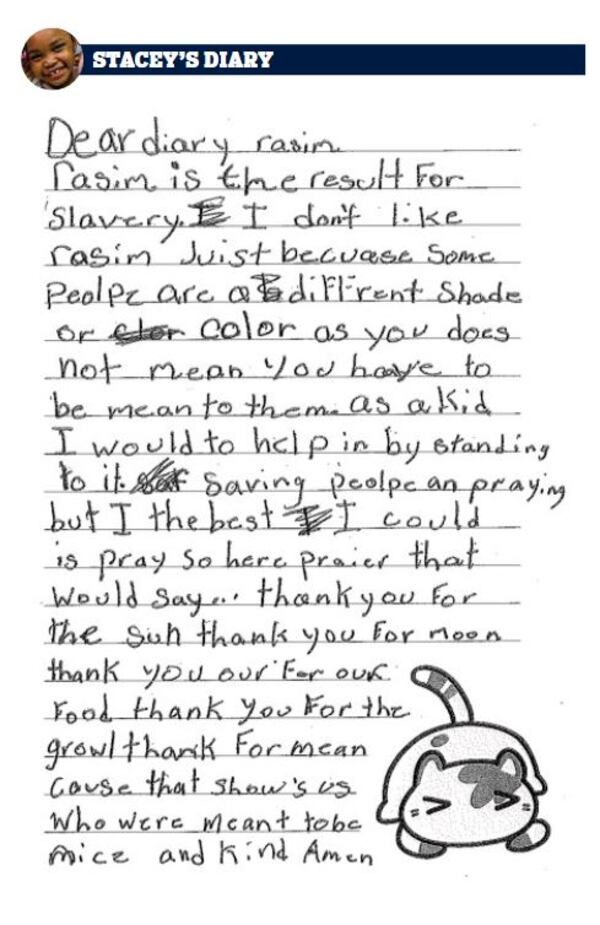 STACEY'S DIARY
Dear diary rasim
rasim is the result For
slavery. I don't like
rasim Juist becuase Some
Peolpe are a diffrent Shade
or color as you does
not mean you have to
be mean to them. as a kid
I would to help in by standing
to it saving peolpe an praying
but I the best I could
is pray so here praier that
would say... thank you for
the sun thank you for moon
thank you our for our
Food thank you for the
growl thank For mean
cause that show's us
who were meant tobe
nice and kind Amen